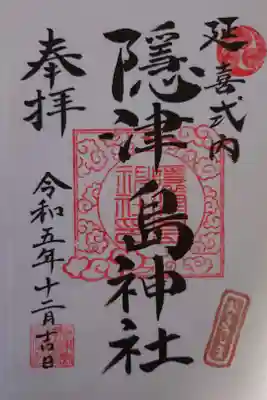 延喜式内
隠津島神社
奉拝
令和五年十二月吉日